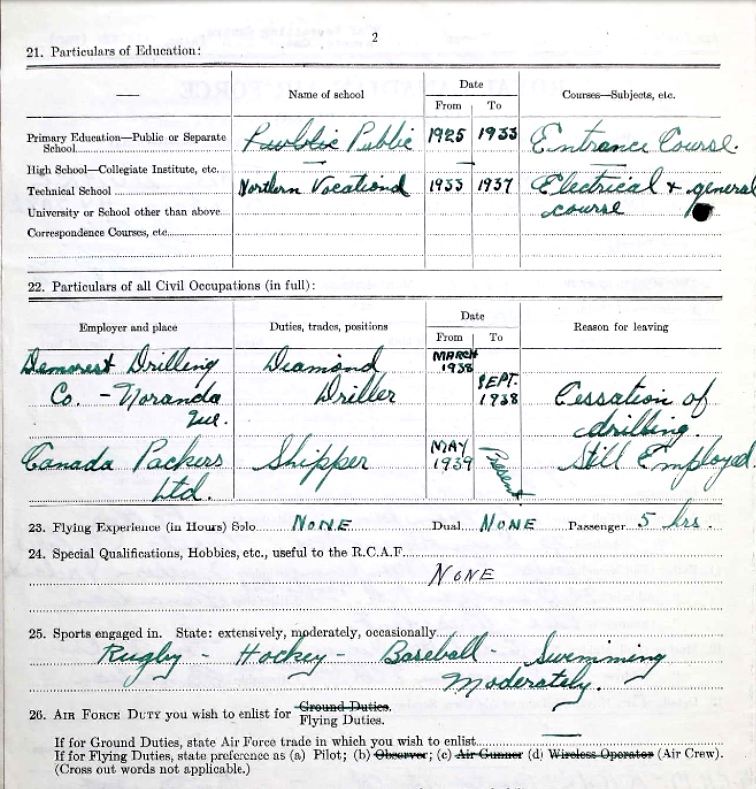 2
21. Particulars of Education:
Name of school
Date
From To
Courses—Subjects, etc.
Primary Education—Public or Separate School
Public 1925 1933 Entrance Course.
High School—Collegiate Institute, etc.
Technical School Northern Vocational 1933 1937 Electrical & general
University or School other than above course
Correspondence Courses, etc.
22. Particulars of all Civil Occupations (in full):
Employer and place
Duties, trades, positions
Date
From To
Reason for leaving
Demorest Drilling Diamond MARCH 1938
Co. - Noranda Driller SEPT. 1938 Cessation of
Que. drilling.
Canada Packers Shipper MAY 1939 Present Still Employed.
Ltd.
23. Flying Experience (in Hours) Solo NONE Dual NONE Passenger 5 hrs.
24. Special Qualifications, Hobbies, etc., useful to the R.C.A.F.
NONE
25. Sports engaged in. State: extensively, moderately, occasionally
Rugby - Hockey - Baseball - Swimming
Moderately.
26. AIR FORCE DUTY you wish to enlist for Ground Duties.
Flying Duties.
If for Ground Duties, state Air Force trade in which you wish to enlist
If for Flying Duties, state preference as (a) Pilot; (b) Observer; (c) Air Gunner (d) Wireless Operator (Air Crew).
(Cross out words not applicable.)